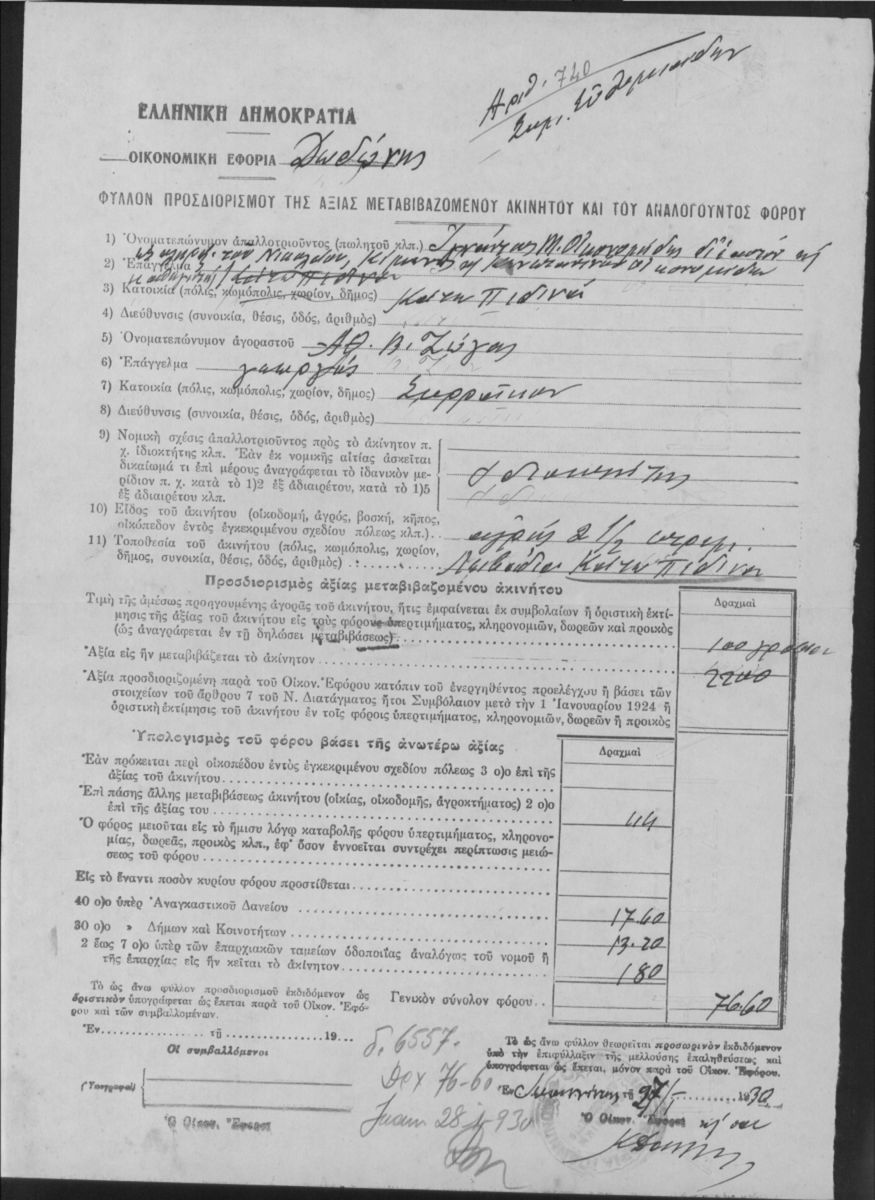 Αριθ. 740
ΕΛΛΗΝΙΚΗ ΔΗΜΟΚΡΑΤΙΑ
ΟΙΚΟΝΟΜΙΚΗ ΕΦΟΡΙΑ Δωδώνης
ΦΥΛΛΟΝ ΠΡΟΣΔΙΟΡΙΣΜΟΥ ΤΗΣ ΑΞΙΑΣ ΜΕΤΑΒΙΒΑΖΟΜΕΝΟΥ ΑΚΙΝΗΤΟΥ ΚΑΙ ΤΟΥ ΑΝΑΛΟΓΟΥΝΤΟΣ ΦΟΡΟΥ
1) Ὀνοματεπώνυμον ἀπαλλοτριοῦντος (πωλητοῦ κλπ.) Μ. Οἰκονομίδης δι' ἑαυτόν
2) Ἐπάγγελμα
3) Κατοικία (πόλις, κωμόπολις, χωρίον, δῆμος) Κάτω Πεδινά
4) Διεύθυνσις (συνοικία, θέσις, ὁδός, ἀριθμὸς)
5) Ὀνοματεπώνυμον ἀγοραστοῦ Ἀθ. Β. Ζώγας
6) Ἐπάγγελμα γεωργός
7) Κατοικία (πόλις, κωμόπολις, χωρίον, δῆμος)
8) Διεύθυνσις (συνοικία, θέσις, ὁδός, ἀριθμὸς)
9) Νομικὴ σχέσις ἀπαλλοτριοῦντος πρὸς τὸ ἀκίνητον π.
χ. ἰδιοκτήτης κλπ. Ἐὰν ἐκ νομικῆς αἰτίας ἀσκεῖται
δικαίωμά τι ἐπὶ μέρους ἀναγράφεται τὸ ἰδανικὸν με-
ρίδιον π. χ. κατὰ τὸ 1)2 ἐξ ἀδιαιρέτου, κατὰ τὸ 1)5
ἐξ ἀδιαιρέτου κλπ.
ἰδιοκτήτης
10) Εἶδος τοῦ ἀκινήτου (οἰκοδομή, ἀγρός, βοσκή, κῆπος,
οἰκόπεδον ἐντὸς ἐγκεκριμένου σχεδίου πόλεως κλπ.). ἀγρός 2 1/2 στρεμ.
11) Τοποθεσία τοῦ ἀκινήτου (πόλις, κωμόπολις, χωρίον,
δῆμος, συνοικία, θέσις, ὁδός, ἀριθμὸς) Λειβάδια Κάτω Πεδινά
Προσδιορισμὸς ἀξίας μεταβιβαζομένου ἀκινήτου
Δραχμαὶ
Τιμὴ τῆς ἀμέσως προηγουμένης ἀγορᾶς τοῦ ἀκινήτου, ἥτις ἐμφαίνεται ἐκ συμβολαίων ἢ ὁριστικὴ ἐκτί-
μησις τῆς ἀξίας τοῦ ἀκινήτου εἰς τοὺς φόρους ὑπερτιμήματος, κληρονομιῶν, δωρεῶν καὶ προικὸς
(ὡς ἀναγράφεται ἐν τῇ δηλώσει μεταβιβάσεως)
Ἀξία εἰς ἣν μεταβιβάζεται τὸ ἀκίνητον
2200
Ἀξία προσδιοριζομένη παρὰ τοῦ Οἰκον. Ἐφόρου κατόπιν τοῦ ἐνεργηθέντος προελέγχου ἢ βάσει τῶν
στοιχείων τοῦ ἄρθρου 7 τοῦ Ν. Διατάγματος ἤτοι Συμβόλαιον μετὰ τὴν 1 Ἰανουαρίου 1924 ἢ
ὁριστικὴ ἐκτίμησις τοῦ ἀκινήτου ἐν τοῖς φόροις ὑπερτιμήματος, κληρονομιῶν, δωρεῶν ἢ προικὸς
Ὑπολογισμὸς τοῦ φόρου βάσει τῆς ἀνωτέρω ἀξίας
Δραχμαὶ
Ἐὰν πρόκειται περὶ οἰκοπέδου ἐντὸς ἐγκεκριμένου σχεδίου πόλεως 3 ο)ο ἐπὶ τῆς
ἀξίας τοῦ ἀκινήτου
Ἐπὶ πάσης ἄλλης μεταβιβάσεως ἀκινήτου (οἰκίας, οἰκοδομῆς, ἀγροκτήματος) 2 ο)ο
ἐπὶ τῆς ἀξίας του 44
Ὁ φόρος μειοῦται εἰς τὸ ἥμισυ λόγῳ καταβολῆς φόρου ὑπερτιμήματος, κληρονο-
μίας, δωρεᾶς, προικὸς κλπ., ἐφ' ὅσον ἐννοεῖται συντρέχει περίπτωσις μειώ-
σεως τοῦ φόρου
Εἰς τὸ ἔναντι ποσὸν κυρίου φόρου προστίθεται
40 ο)ο ὑπὲρ Ἀναγκαστικοῦ Δανείου 17.60
30 ο)ο » Δήμων καὶ Κοινοτήτων 13.20
2 ἕως 7 ο)ο ὑπὲρ τῶν ἐπαρχιακῶν ταμείων ὁδοποιΐας ἀναλόγως τοῦ νομοῦ ἢ
τῆς ἐπαρχίας εἰς ἣν κεῖται τὸ ἀκίνητον 1 80
Γενικὸν σύνολον φόρου 76.60
Τὸ ὡς ἄνω φύλλον προσδιορισμοῦ ἐκδιδόμενον ὡς
ὁριστικὸν ὑπογράφεται ὡς ἕπεται παρὰ τοῦ Οἰκον. Ἐφό-
ρου καὶ τῶν συμβαλλομένων.
Ἐν τῇ 19
Οἱ συμβαλλόμενοι
(Ὑπογραφαὶ)
Ὁ Οἰκον. Ἔφορος
δ. 6557
Δρχ 76.60
28 930
Τὸ ὡς ἄνω φύλλον θεωρεῖται προσωρινὸν ἐκδιδόμενον
ὑπὸ τὴν ἐπιφύλλαξιν τῆς μελλούσης ἐπαληθεύσεως καὶ
ὑπογράφεται ὡς ἕπεται, μόνον παρὰ τοῦ Οἰκον. Ἐφόρου.
Ἐν τῇ 27 1930
Ὁ Οἰκον. Ἔφορος